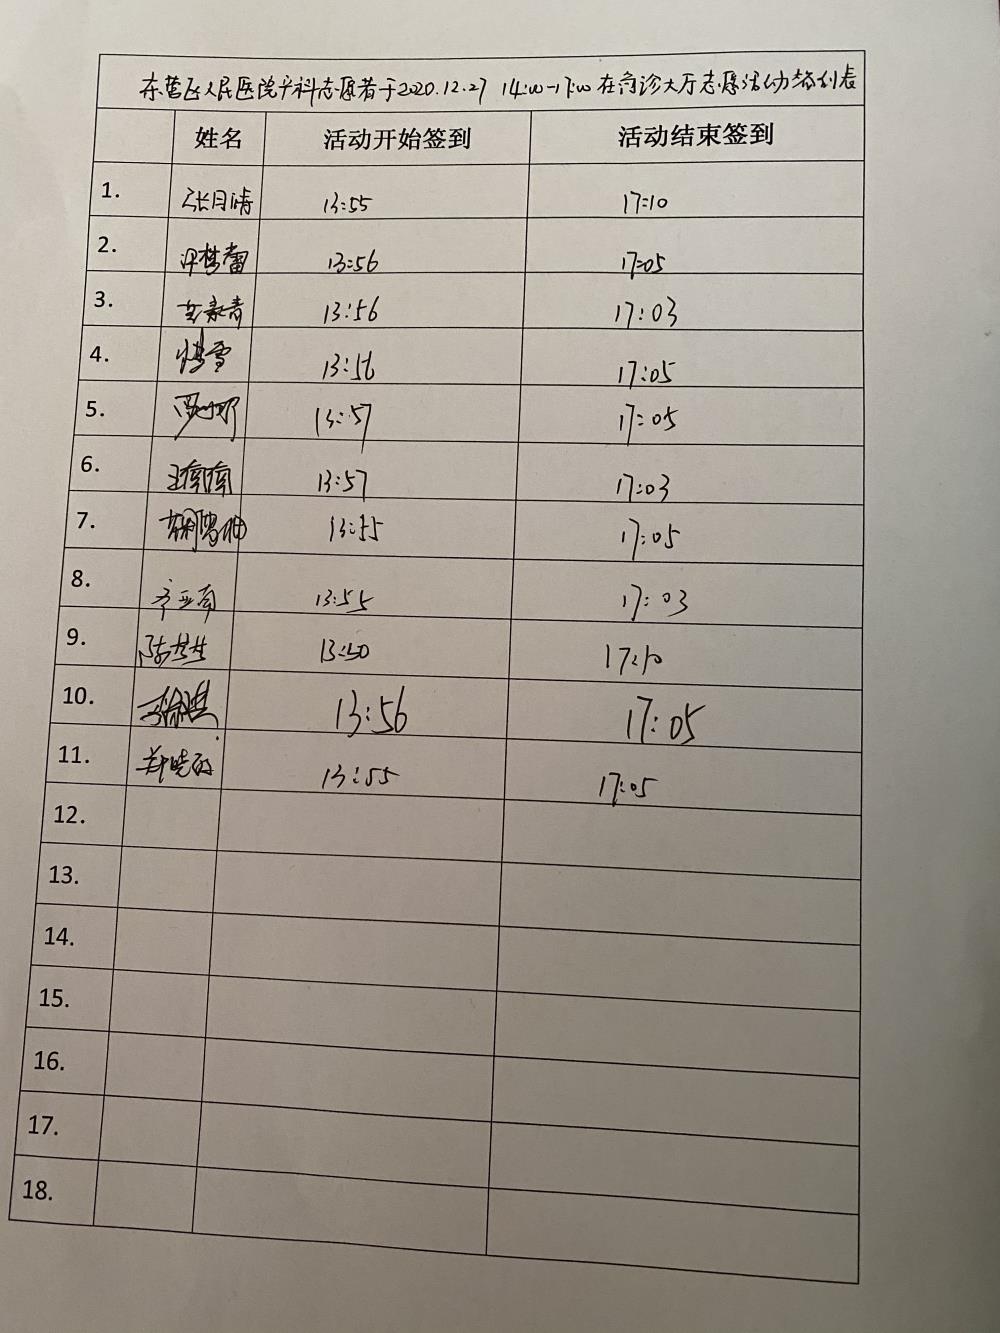 东营区人民医院产科志愿者于2020.12.27 14:00-17:00在急诊大厅志愿活动签到表
姓名 活动开始签到 活动结束签到
1. 张月晴 13:55 17:10
2. 13:56 17:05
3. 13:56 17:03
4. 13:56 17:05
5. 13:57 17:05
6. 王南南 13:57 17:03
7. 13:55 17:05
8. 齐亚南 13:55 17:03
9. 13:50 17:10
10. 13:56 17:05
11. 13:55 17:05
12.
13.
14.
15.
16.
17.
18.